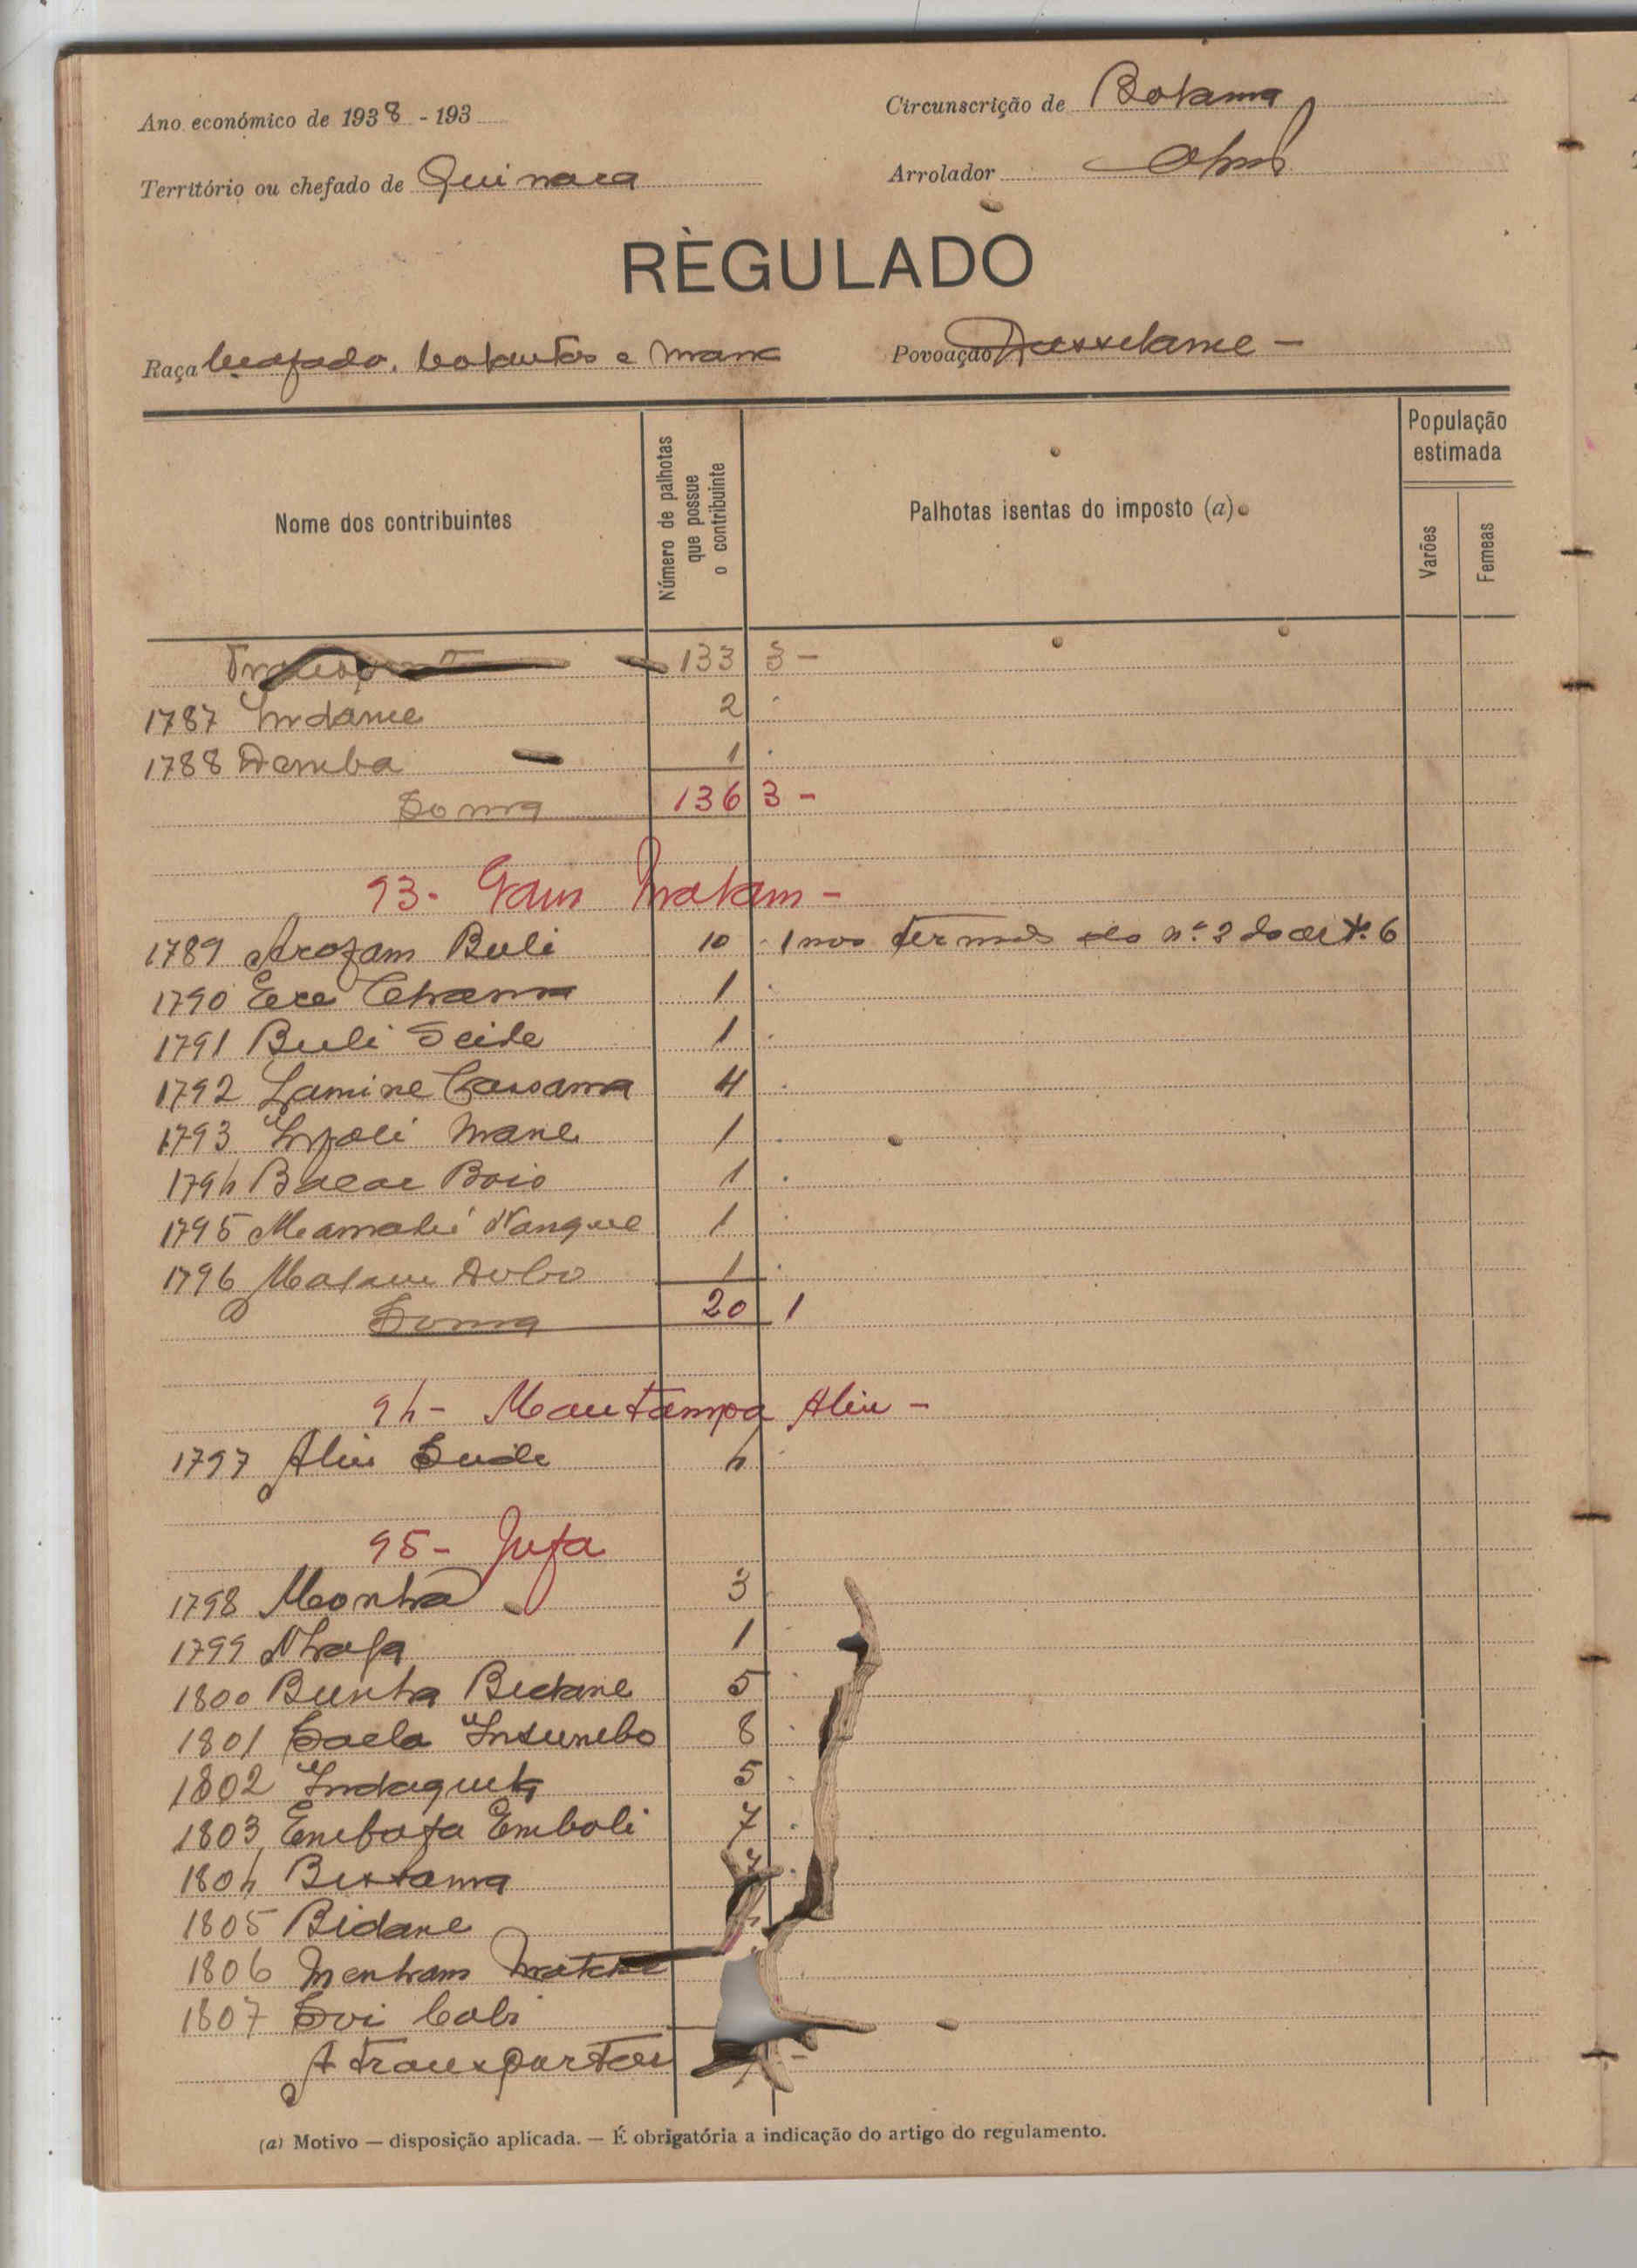 Ano económico de 1938 - 193
Circunscrição de Bolama
Território ou chefado de Quinara
Arrolador
RÈGULADO
Raça beafada, balantas e manc
Povoação
Nome dos contribuintes
Número de palhotas que possue o contribuinte
Palhotas isentas do imposto (a)
População estimada
Varões
Femeas
Transporte 133 3 -
1787 Indame 2
1788 Demba 1
Soma 136 3 -
93 - Gam
1789 Arafam Buli 10 1 nos termos do nº 2 do artº 6
1790 1
1791 Buli Seide 1
1792 Lamine Cassama 4
1793 Infali Mane 1
1794 Bacar Boio 1
1795 Mamadú Nanque 1
1796 Malam 1
Soma 20 1
94 - Mantampa Aliu -
1797 Aliu Seide 4
95 - Jufa
1798 Monha 3
1799 Nhafa 1
1800 Bunha Bedane 5
1801 Insumbo 8
1802 Indaqueta 5
1803 Embafa Emboli 7
1804 Bissama 7
1805 Bidane
1806
1807
A transportar
(a) Motivo — disposição aplicada. — É obrigatória a indicação do artigo do regulamento.